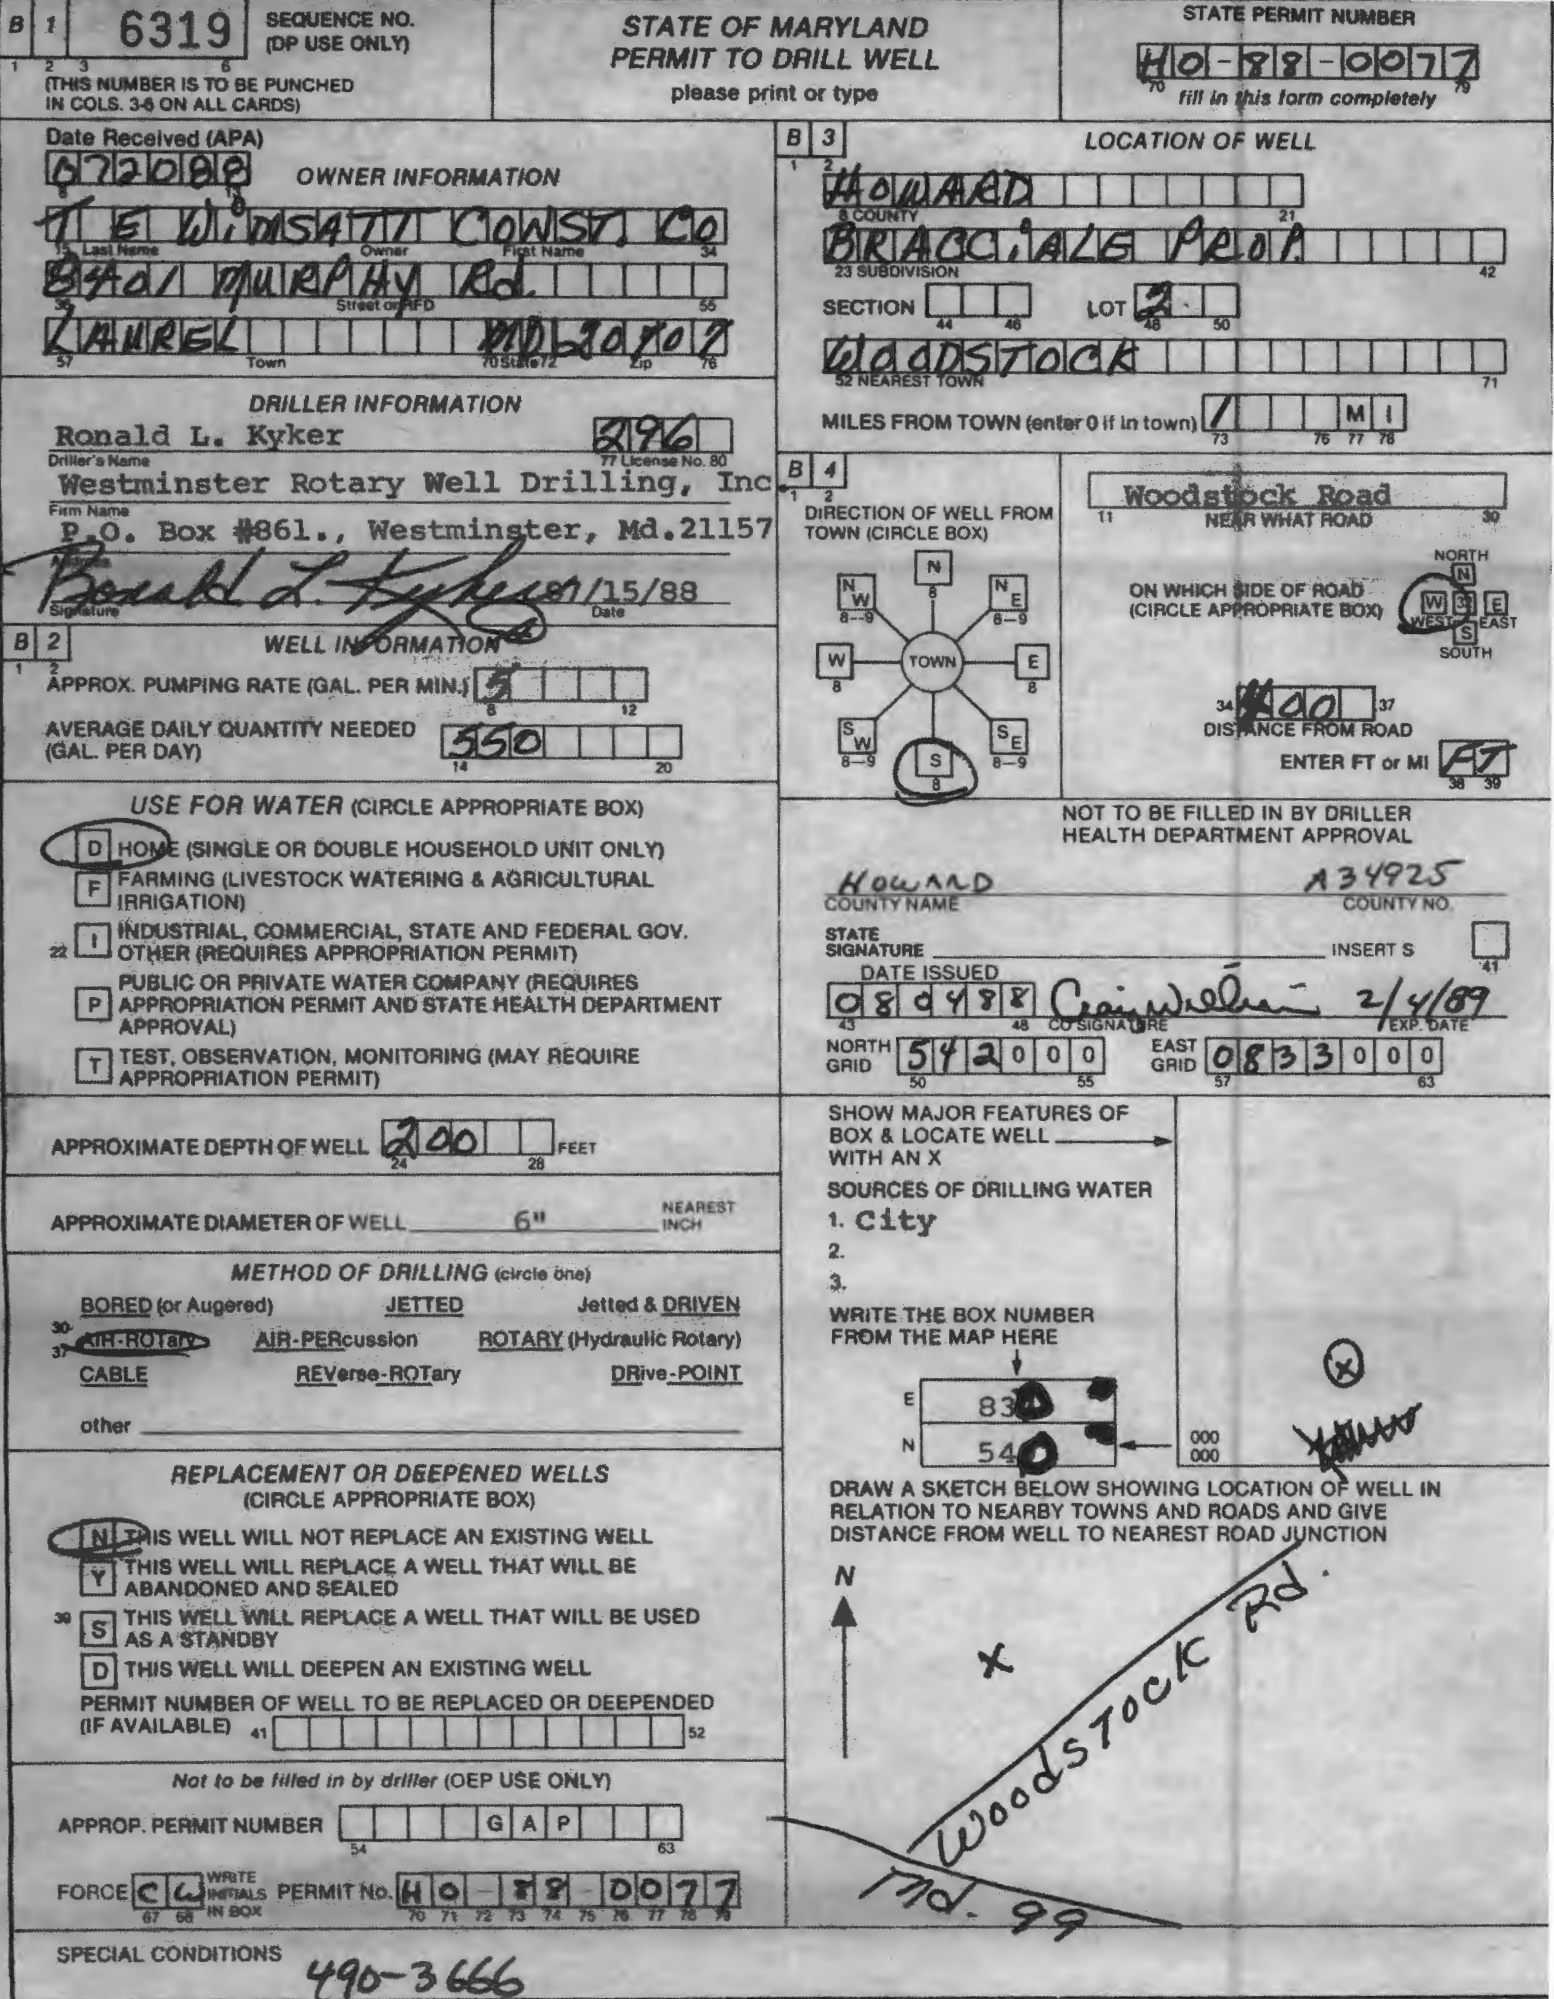 B 1 6319 SEQUENCE NO. (DP USE ONLY)
1 2 3 6
(THIS NUMBER IS TO BE PUNCHED
IN COLS. 3-6 ON ALL CARDS)
STATE OF MARYLAND
PERMIT TO DRILL WELL
please print or type
STATE PERMIT NUMBER
HO-88-0077
70 79
fill in this form completely
Date Received (APA)
072088
8 13
OWNER INFORMATION
T E WIMSATT CONST. CO
15 Last Name Owner First Name 34
8401 MURPHY Rd.
36 Street or RFD 55
LAUREL MD 20707
57 Town 70 State 72 Zip 76
DRILLER INFORMATION
Ronald L. Kyker 296
Driller's Name 77 License No. 80
Westminster Rotary Well Drilling, Inc.
Firm Name
P.O. Box #861., Westminster, Md.21157
Address
Ronald L. Kyker 07/15/88
Signature Date
B 2 WELL INFORMATION
1 2
APPROX. PUMPING RATE (GAL. PER MIN.) 5
8 12
AVERAGE DAILY QUANTITY NEEDED
(GAL. PER DAY) 550
14 20
USE FOR WATER (CIRCLE APPROPRIATE BOX)
D HOME (SINGLE OR DOUBLE HOUSEHOLD UNIT ONLY)
F FARMING (LIVESTOCK WATERING & AGRICULTURAL
IRRIGATION)
22 I INDUSTRIAL, COMMERCIAL, STATE AND FEDERAL GOV.
OTHER (REQUIRES APPROPRIATION PERMIT)
P PUBLIC OR PRIVATE WATER COMPANY (REQUIRES
APPROPRIATION PERMIT AND STATE HEALTH DEPARTMENT
APPROVAL)
T TEST, OBSERVATION, MONITORING (MAY REQUIRE
APPROPRIATION PERMIT)
APPROXIMATE DEPTH OF WELL 200 FEET
24 28
APPROXIMATE DIAMETER OF WELL 6" NEAREST
INCH
METHOD OF DRILLING (circle one)
BORED (or Augered) JETTED Jetted & DRIVEN
30 37 AIR-ROTary AIR-PERcussion ROTARY (Hydraulic Rotary)
CABLE REVerse-ROTary DRive-POINT
other
REPLACEMENT OR DEEPENED WELLS
(CIRCLE APPROPRIATE BOX)
N THIS WELL WILL NOT REPLACE AN EXISTING WELL
Y THIS WELL WILL REPLACE A WELL THAT WILL BE
ABANDONED AND SEALED
39 S THIS WELL WILL REPLACE A WELL THAT WILL BE USED
AS A STANDBY
D THIS WELL WILL DEEPEN AN EXISTING WELL
PERMIT NUMBER OF WELL TO BE REPLACED OR DEEPENDED
(IF AVAILABLE) 41 52
Not to be filled in by driller (OEP USE ONLY)
APPROP. PERMIT NUMBER G A P
54 63
FORCE CW WRITE INITIALS IN BOX PERMIT No. HO-88-0077
67 68 70 71 72 73 74 75 76 77 78 79
SPECIAL CONDITIONS
490-3666
B 3 LOCATION OF WELL
1 2
HOWARD
8 COUNTY 21
BRACCiALE PROP.
23 SUBDIVISION 42
SECTION LOT 2
44 46 48 50
WOODSTOCK
52 NEAREST TOWN 71
MILES FROM TOWN (enter 0 if in town) 1 M I
73 76 77 78
B 4
1 2
DIRECTION OF WELL FROM
TOWN (CIRCLE BOX)
N 8
NW 8-9 NE 8-9
W 8 TOWN E 8
SW 8-9 SE 8-9
S 8
Woodstock Road
11 NEAR WHAT ROAD 30
ON WHICH SIDE OF ROAD
(CIRCLE APPROPRIATE BOX)
NORTH
N
W 32 E
WEST EAST
S
SOUTH
34 400 37
DISTANCE FROM ROAD
ENTER FT or MI FT
38 39
NOT TO BE FILLED IN BY DRILLER
HEALTH DEPARTMENT APPROVAL
HOWARD A34925
COUNTY NAME COUNTY NO.
STATE
SIGNATURE INSERT S
41
DATE ISSUED
080488 Craig Williams 2/4/89
43 48 CO SIGNATURE EXP. DATE
NORTH GRID 542000 EAST GRID 0833000
50 55 57 63
SHOW MAJOR FEATURES OF
BOX & LOCATE WELL
WITH AN X
SOURCES OF DRILLING WATER
1. City
2.
3.
WRITE THE BOX NUMBER
FROM THE MAP HERE
E 830
N 540
000
000
X
DRAW A SKETCH BELOW SHOWING LOCATION OF WELL IN
RELATION TO NEARBY TOWNS AND ROADS AND GIVE
DISTANCE FROM WELL TO NEAREST ROAD JUNCTION
N
X
Woodstock Rd.
Md. 99